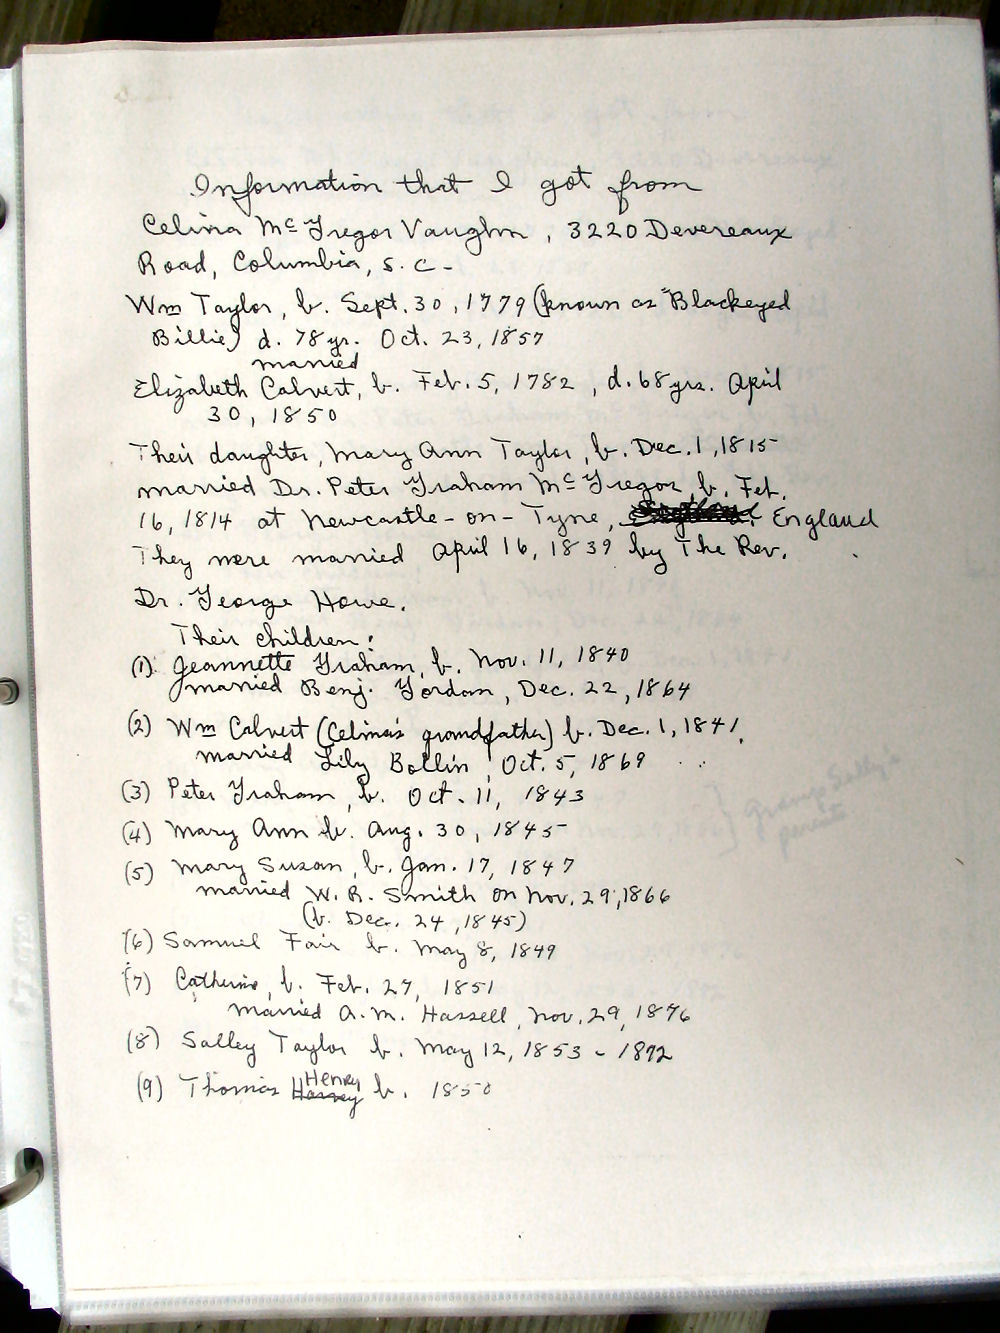 Information that I got from
Celina McGregor Vaughn, 3220 Devereaux
Road, Columbia, S.C.
Wm Taylor, b. Sept. 30, 1779 (known as "Blackeyed
Billie) d. 78 yr. Oct. 23, 1857
married
Elizabeth Calvert, b. Feb. 5, 1782, d. 68 yrs. April
30, 1850
Their daughter, Mary Ann Taylor, b. Dec. 1, 1815
married Dr. Peter Graham McGregor, b. Feb.
16, 1814 at Newcastle-on-Tyne, England
They were married April 16, 1839 by The Rev.
Dr. George Howe.
Their children:
(1) Jeannette Graham, b. Nov. 11, 1840
married Benj. Jordan, Dec. 22, 1864
(2) Wm Calvert (Celina's grandfather) b. Dec. 1, 1841,
married Lily Bollin, Oct. 5, 1869
(3) Peter Graham, b. Oct. 11, 1843
(4) Mary Ann b. Aug. 30, 1845
(5) Mary Susan, b. Jan. 17, 1847
married W. R. Smith on Nov. 29, 1866
(b. Dec. 24, 1845)
} Gramp Sally's
parents
(6) Samuel Fair b. May 8, 1849
(7) Catherine, b. Feb. 27, 1851
married A. M. Hassell, Nov. 29, 1876
(8) Salley Taylor b. May 12, 1853 - 1892
(9) Thomas Henry b. 1850